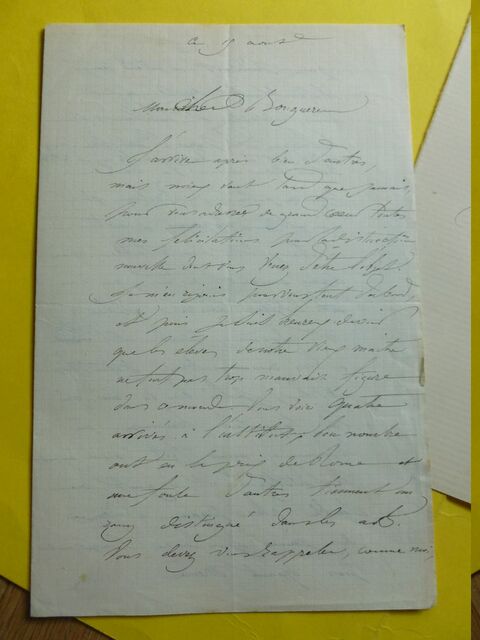 ce 9 aout
Mon cher Bouguereau
J'arrive après bien d'autres,
mais mieux vaut tard que jamais,
pour vous adresser de grand cœur toutes
mes félicitations pour la distinction
nouvelle dont vous venez d'être l'objet.
Je m'en réjouis pour vous tout d'abord
et puis je suis heureux de voir
que les élèves de notre vieux maître
ne font pas trop mauvaise figure
dans ce monde. Vous voici quatre
arrivés à l'institut, bon nombre
ont eu le prix de Rome et
une foule d'autres tiennent un
rang distingué dans les arts.
Vous devez vous rappeler, comme moi,